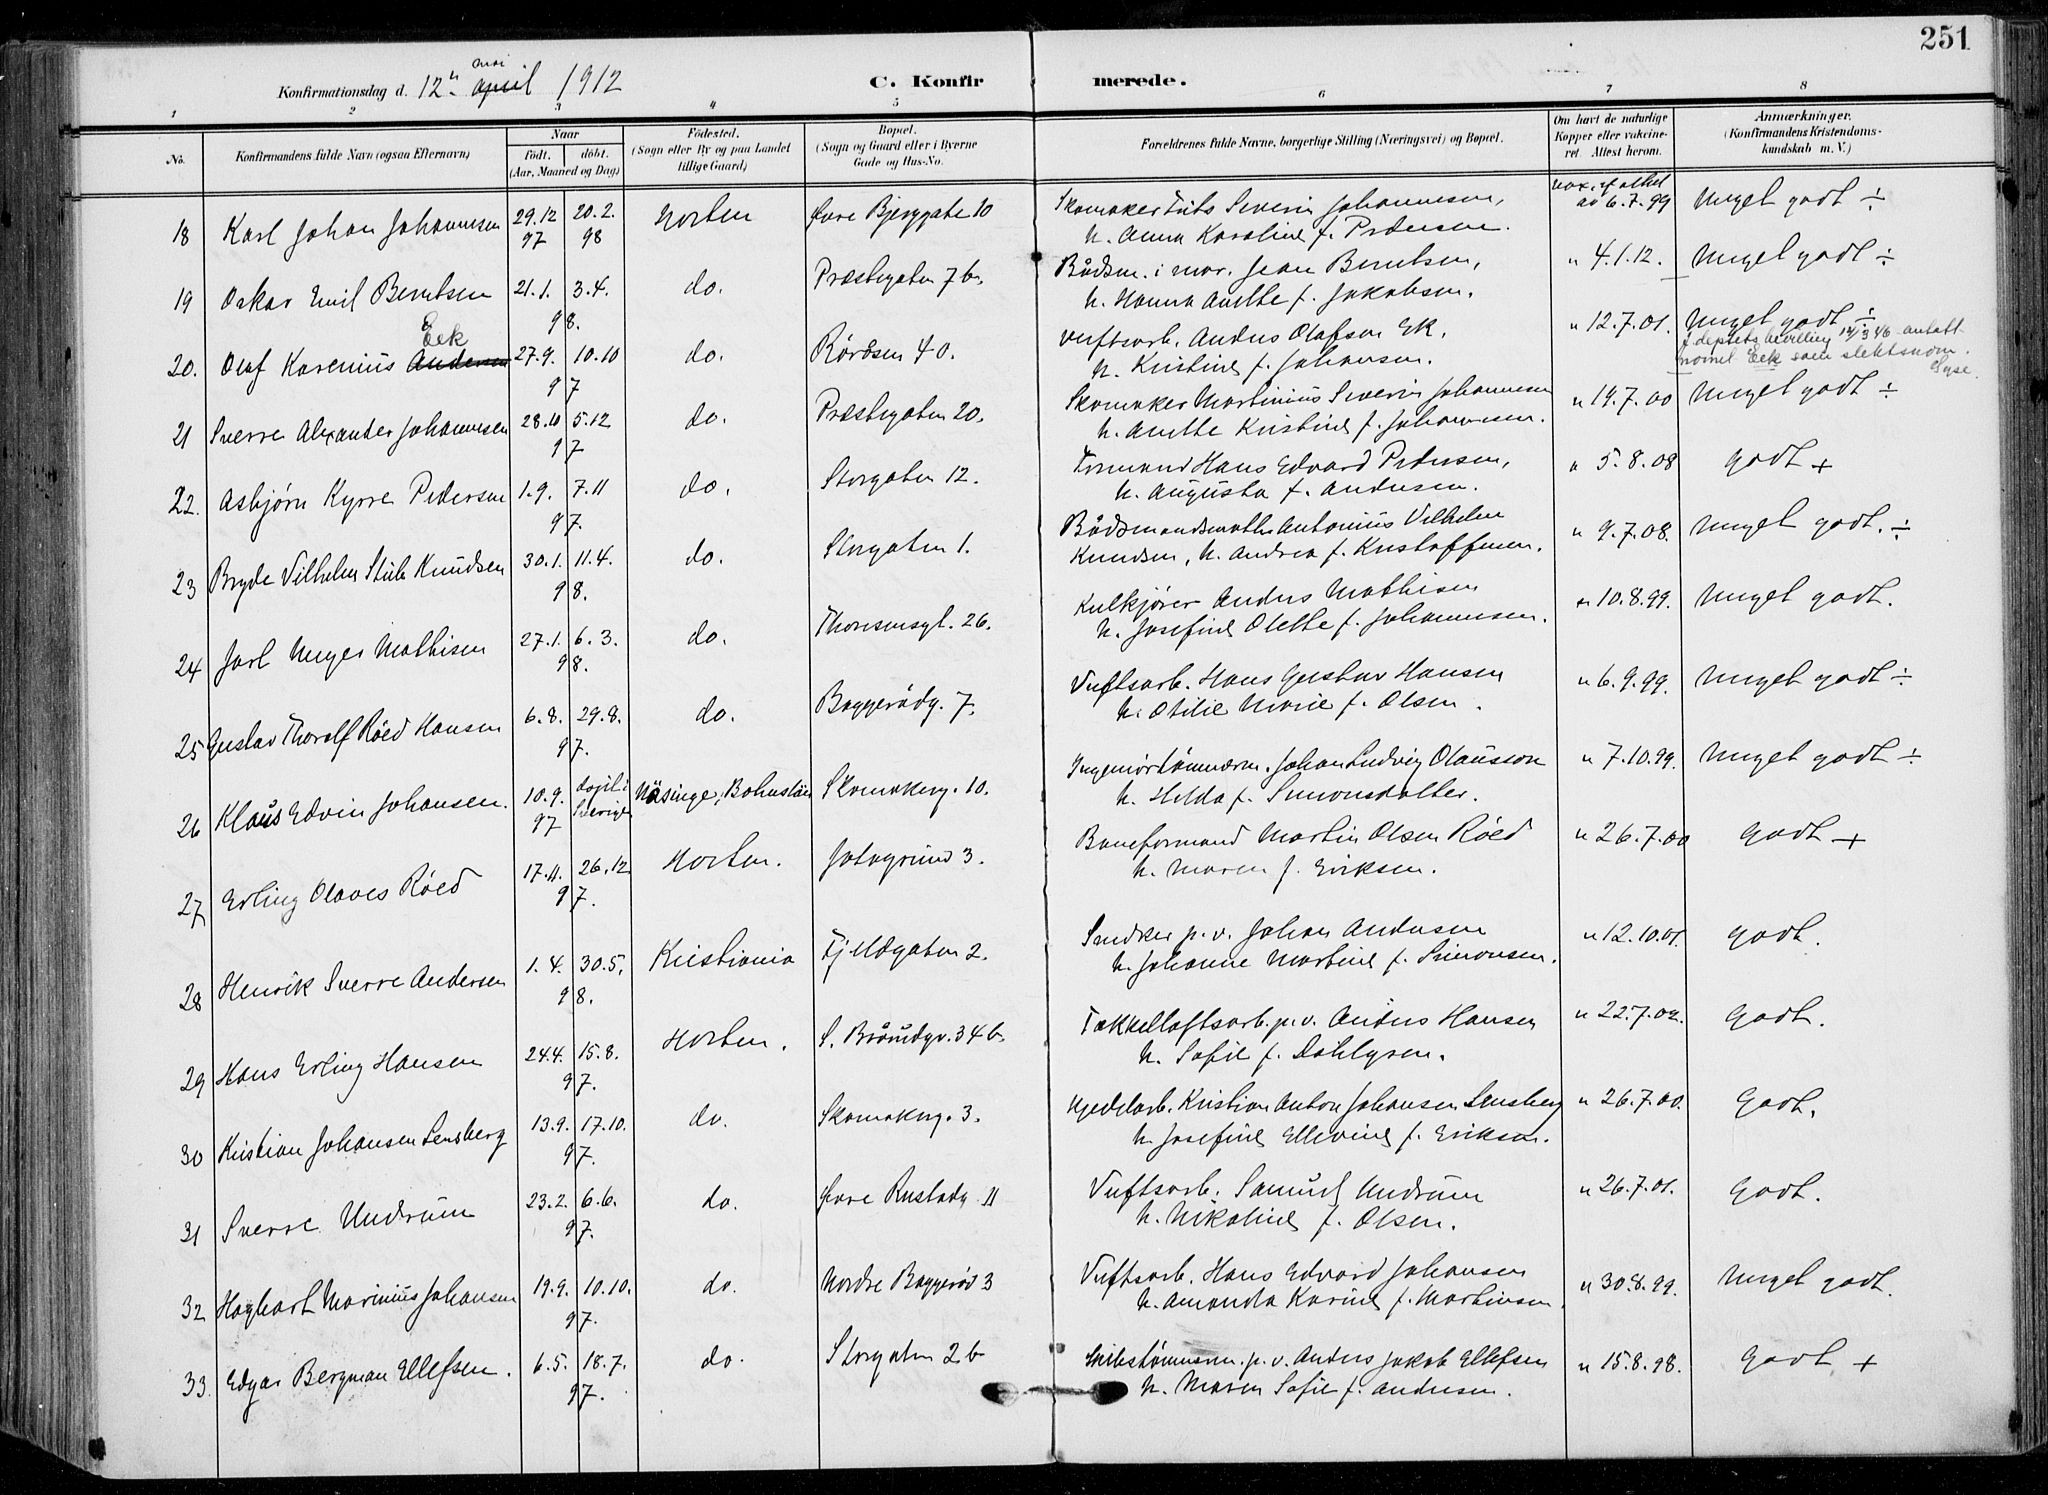 251
mai
Konfirmationsdag d. 12te april 1912
C. Konfirmerede.
1 2 3 4 5 6 7 8
No.
Konfirmandens fulde Navn (ogsaa Efternavn)
Naar
født. døbt.
(Aar, Maaned og Dag)
Fødested.
(Sogn eller By og paa Landet
tillige Gaard)
Bopæl.
(Sogn og Gaard eller i Byerne
Gade og Hus-No.
Forældrenes fulde Navne, borgerlige Stilling (Næringsvei) og Bopæl.
Om havt de naturlige
Kopper eller vakcine-
ret. Attest herom.
Anmærkninger.
(Konfirmandens Kristendoms-
kundskab m. V.)
18 Karl Johan Johannesen 29.12 97 20.2. 98 Horten Øvre Bjerggate 10
Skomaker Fritz Severin Johannesen,
h. Anna Karoline f. Pedersen.
vax. if. attest
av 6.7.99 Meget godt ÷
19 Oskar Emil Berntsen 21.1. 3.4. 98. do. Præstegaten 7b.
Bådsm. i mar. Jean Berntsen,
h. Hanna Anette f. Jakobsen.
" 4.1.12. Meget godt ÷
20. Olaf Karenius Andersen Eek 27.9. 10.10 97 do. Røråsen 40.
Verftsarb. Anders Olafsen Ek.
h. Kristine f. Johansen.
" 12.7.01. Meget godt ÷
f. deptets bevilling 14/3 46 antatt
navnet Eek som slektsnavn.
21 Sverre Alexander Johannesen 28.10 5.12 97 do. Præstegaten 20.
Skomaker Martinius Severin Johannesen
h. Anette Kristine f. Johannesen.
" 19.7.00 Meget godt ÷
22. Asbjørn Kyrre Pedersen 1.9. 7.11 97. do. Storgaten 12.
Formand Hans Edvard Pedersen,
h. Augusta f. Andersen.
" 5.8.08 godt +
23 Bryde Vilhelm Stub Knudsen 30.1. 11.4. 98. do. Storgaten 1.
Bådsmandsmath Antonius Vilhelm
Knudsen, h. Andrea f. Kristoffersen.
" 9.7.08. Meget godt. ÷
24 Jarl Meyer Mathisen 27.1. 6.3. 98. do. Thorensensgt. 26.
Kulkjører Anders Mathisen
h. Josefine Olette f. Johannesen.
" 10.8.99. Meget godt.
25 Gustav Thoralf Røed Hansen 6.8. 29.8. 97. do. Baggerødg. 7.
Verftsarb. Hans Gustav Hansen
h. Otilie Marie f. Olsen.
" 6.9.99. Meget godt ÷
26 Klaus Edvin Johansen. 10.9. 97 døpt i Sverige Näsinge, Bohuslän Skomakerg. 10.
Ingeniørtømmerm. Johan Ludvig Olausson
h. Hilda f. Simonsdatter.
" 7.10.99. Meget godt ÷
27 Erling Olaves Røed 17.11. 26.12 97. Horten. Jatagrund 3.
Baneformand Martin Olsen Røed
h. Maren f. Eriksen.
" 26.7.00 Godt +
28 Henrik Sverre Andersen 1.4. 30.5. 98. Kristiania Fjeldgaten 2.
Snedker p.v. Johan Andersen
h. Johanne Martine f. Simonsen.
" 12.10.01. godt.
29 Hans Erling Hansen 24.4. 15.8. 97. Horten. S. Bråradgr. 34 b.
Takkelloftsarb. p.v. Anders Hansen
h. Sofie f. Dahlgren.
" 22.7.02. Godt.
30 Kristian Johansen Lensberg 13.9. 17.10. 97. do. Skomakerg. 3.
Kjedelarb. Kristian Anton Johansen Lensberg
h. Josefine Ellevine f. Eriksen.
" 26.7.00. Godt.
31 Sverre Undrum 23.2. 6.6. 97. do. Øvre Rustadg. 11
Verftsarb. Samuel Undrum
h. Nikoline f. Olsen.
" 26.7.01. Godt.
32 Hagbart Marinius Johansen 19.9. 10.10. 97. do. Nordre Baggerød 3
Verftsarb. Hans Edvard Johansen
h. Amanda Karine f. Martinsen.
" 30.8.99. Meget godt.
33. Edgar Bergman Ellefsen. 6.5. 18.7. 97. do. Storgaten 2b
Skibstømmerm. p.v. Anders Jakob Ellefsen
h. Maren Sofie f. Andersen.
" 15.8.98. Godt +